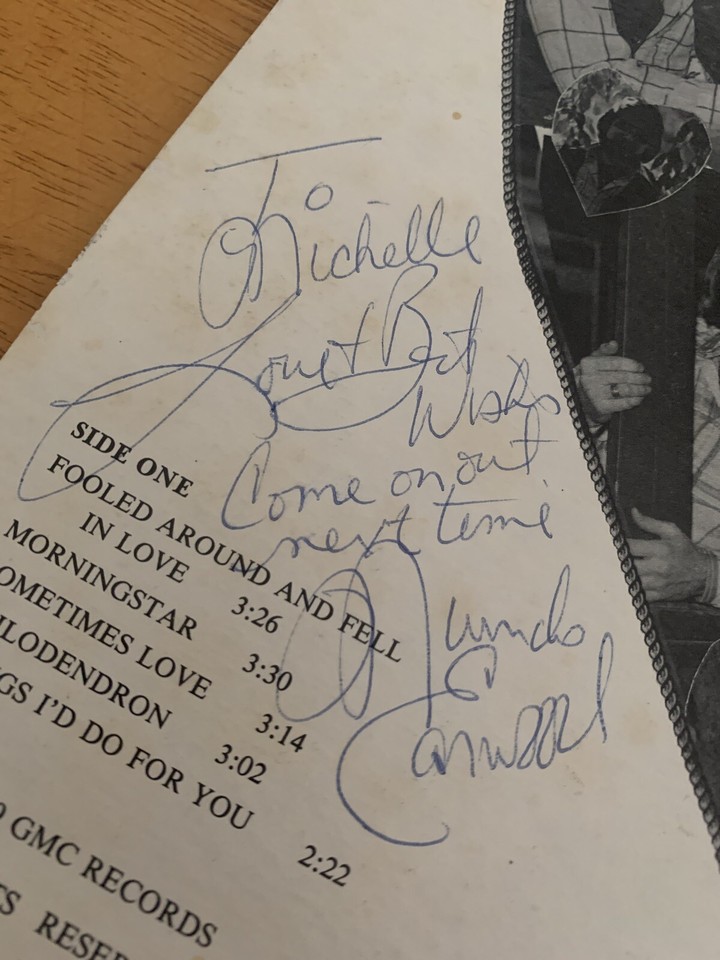 To
Michelle
Love + Best
Wishes
Come on out
next time
SIDE ONE
FOOLED AROUND AND FELL
IN LOVE 3:26
MORNINGSTAR 3:30
OMETIMES LOVE 3:14
ILODENDRON 3:02
GS I'D DO FOR YOU 2:22
GMC RECORDS
TS RESER